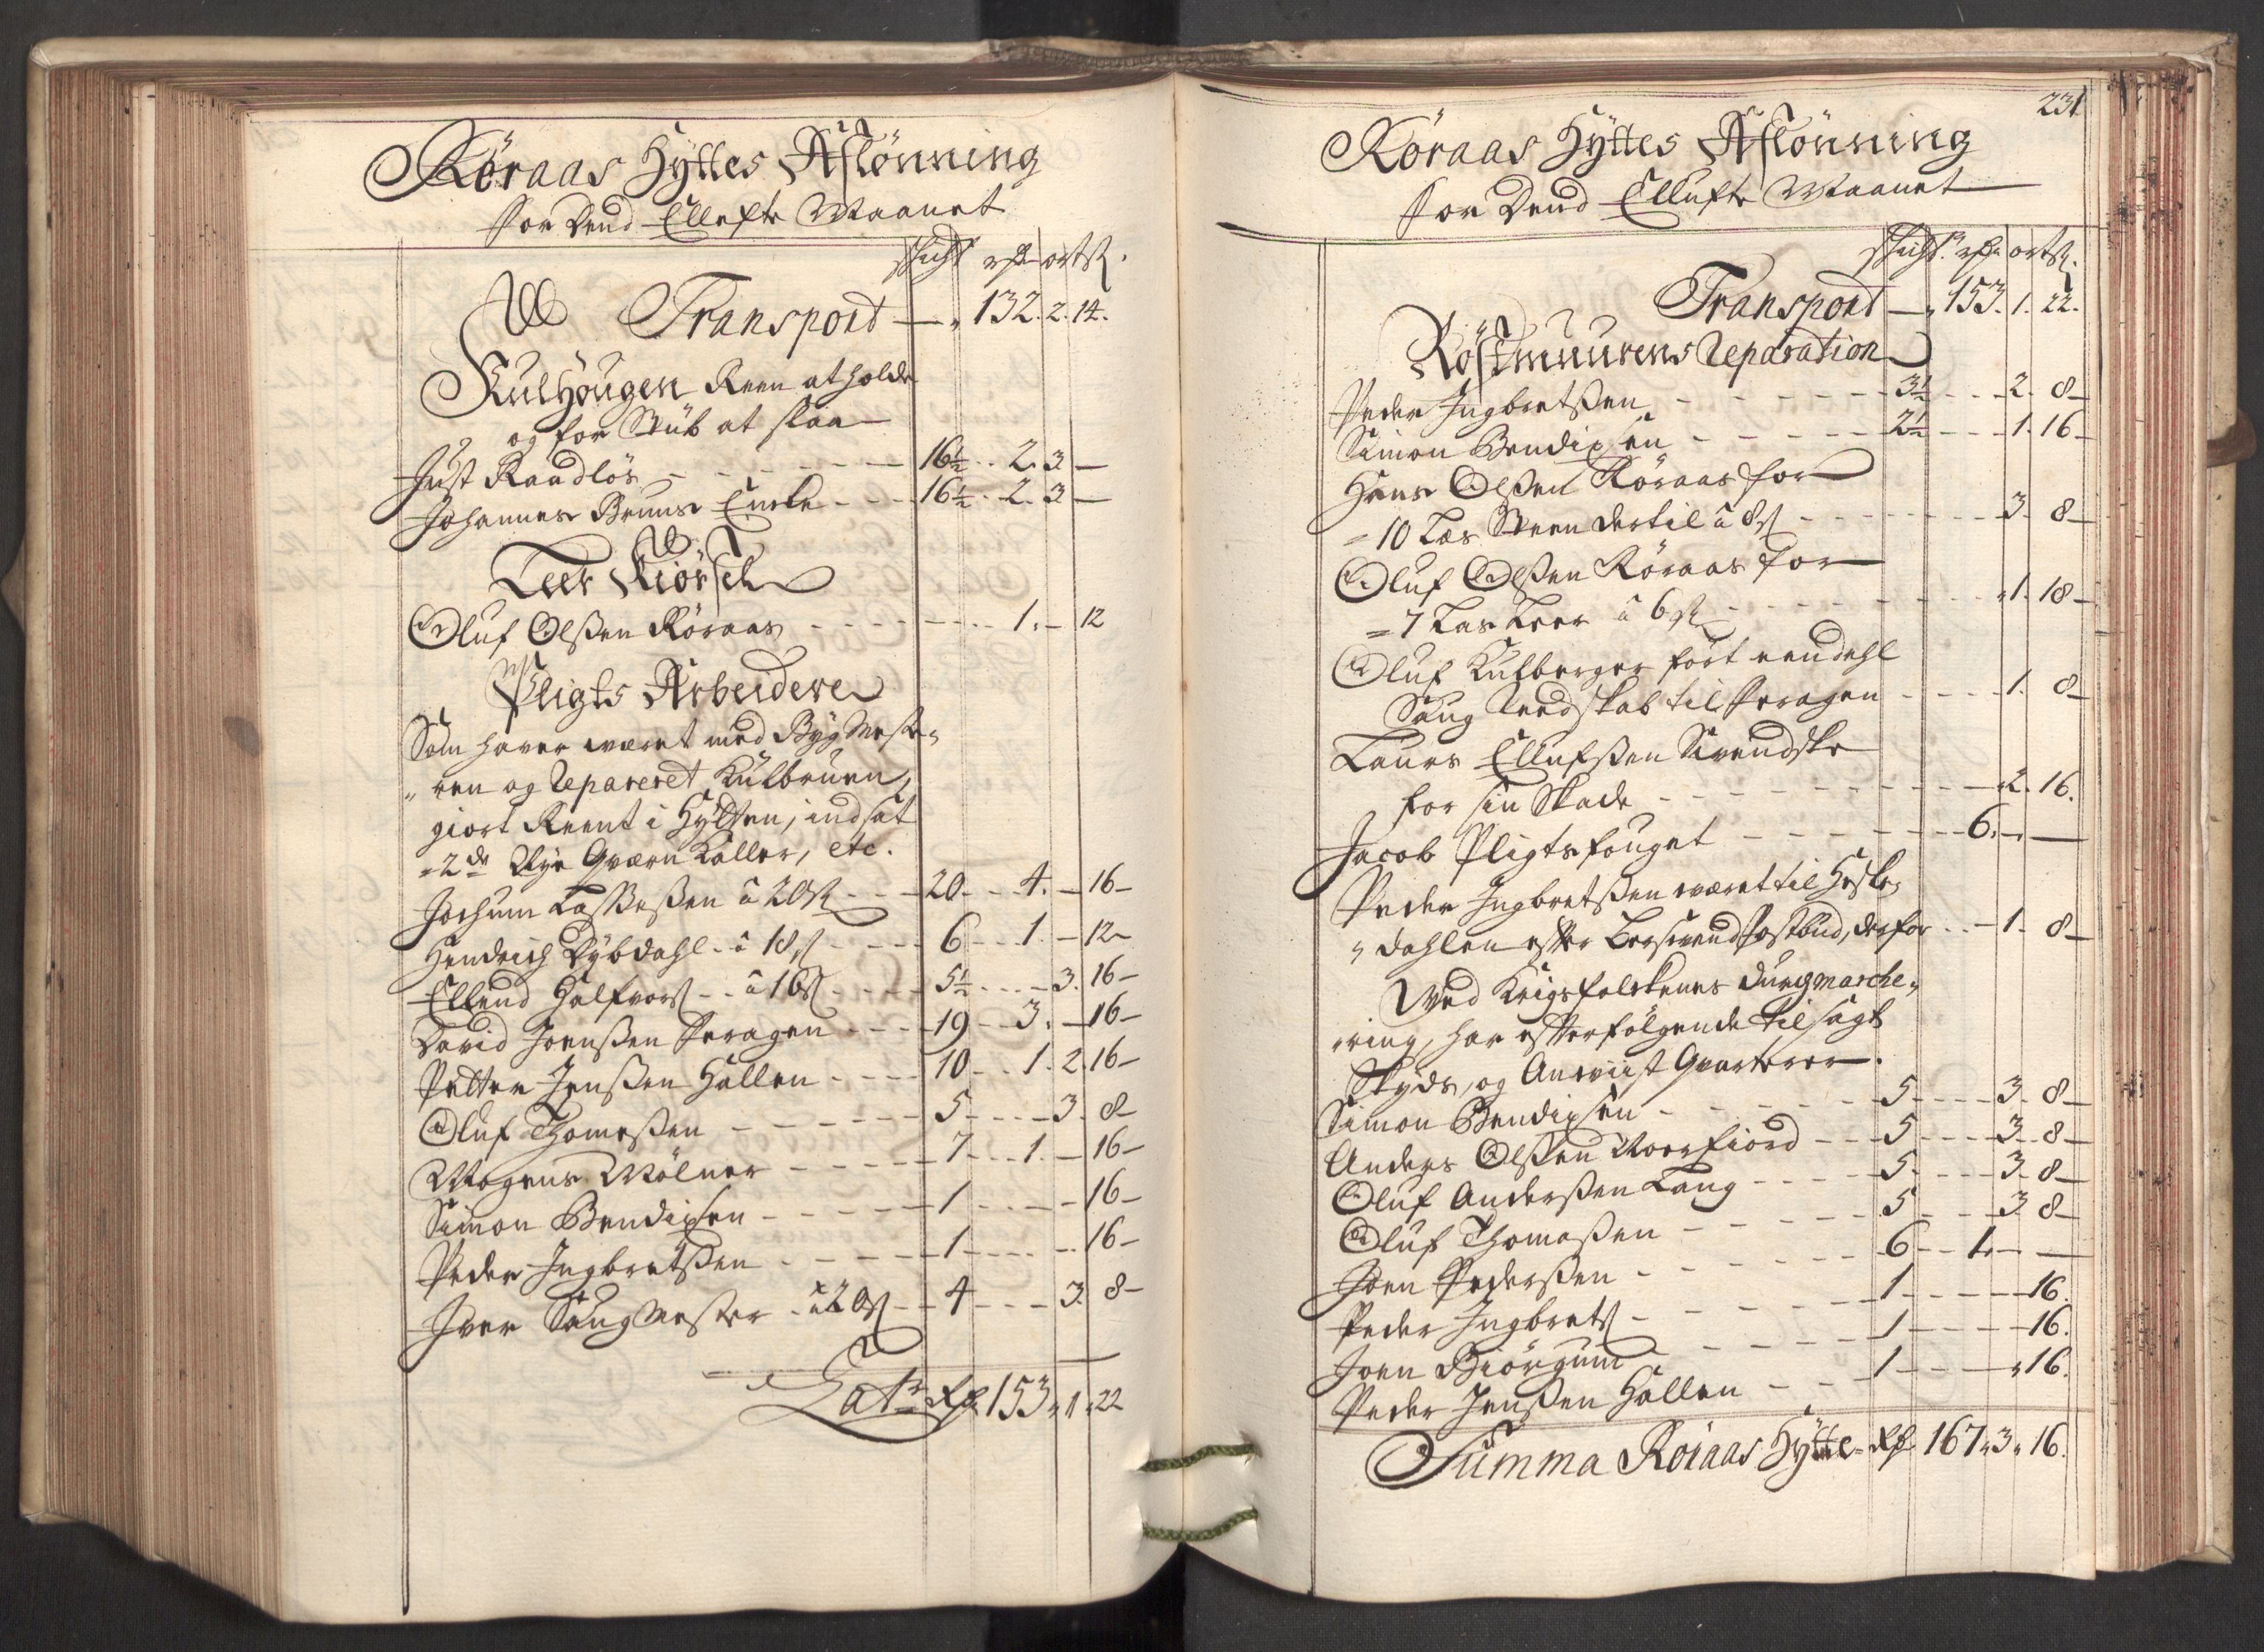 Röraas Hyttes Aflönning
for Dend Ellefte Maanet
schicht rdr ort s.
Transport — „ 132. 2. 14.
Kulhougen Reen at holde
og for Stüb at slaa
Just Raadlös - - - 16½ . . 2. 3 —
Johannes Bruns Encke - - - 16½ . . 2. 3 —
Leer Kiörsel
Oluf Olßen Röraas - - - 1. — 12
Pligts Arbeidere
Som haver været med Bygmeste„
„ren og Repareret Kulbruen,
giort Reent i Hytten, indsat
= 2de Nye Qværn Kaller, etc.
Jochum Laßeßen â 20 s - - 20 - - 4. — 16 —
Hendrich Dybdahl - â 18 s - - - 6 - - 1. — 12 —
Ellend Halfvors - - â 16 s - - - 5½ - - - 3. 16 —
David Joenßen Feragen - - - 19 - - 3. — 16 —
Petter Jenßen Hallen - - - 10 - - 1. 2. 16 —
Oluf Thomeßen - - - 5 - - - 3. 8 —
Mogens Mölner - - - 7 - - 1. — 16 —
Simon Bendixen - - - 1 - - - 16 —
Peder Ingbretßen - - - 1 - - - 16 —
Iver Saugmester - â 20 s - - 4 - - - 3. 8 —
Latr Rdr 153 „ 1 „ 22
231
Röraas Hyttes Aflönning
for Dend Ellufte Maanet
schicht. rdr ort s.
Transport — „ 153. 1. 22.
Röstmuurens Reparation
Peder Ingbretßen - - - 3½ - - - 2. 8 —
Simon Bendixen - - - 2½ - - - 1. 16 —
Hans Olßen Röraas for
= 10 Læs Steen dertil â 8 s - - - 3. 8 —
Oluf Olßen Röraas for
= 7 Læs Leer â 6 s - - - 1. 18 —
Oluf Kulberger fört eendehl
Saug Reedskab til Feragen - - - 1. 8 —
Laurs Ellufßen Svendske
for sin Skade - - - 2. 16.
Jacob Pligtsfouget - - - 6. — —
Peder Ingbretßen været til Heske„
„dahlen efter Bersvend Postbud, derfor - - 1. 8 —
Ved Krigsfolckenes Durgmarche„
„ring, har efterfölgende tilsagt
Skyds, og Anviist Qvarterer.
Simon Bendixen - - - 5 - - - 3. 8 —
Anders Olßen Noerfiord - - - 5 - - - 3. 8 —
Oluf Anderßen Lang - - - 5 - - - 3. 8 —
Oluf Thomaßen - - - 5 - - - 3 8 —
Joen Pederßen - - - 6 - - 1. — —
Peder Ingbrets - - - 1 - - - 16.
Joen Biörgum - - - 1 - - - 16.
Peder Jenßen Hallen - - - 1 - - - „ 16.
Summa Röraas Hytte - Rdr 167 „ 3 „ 16.